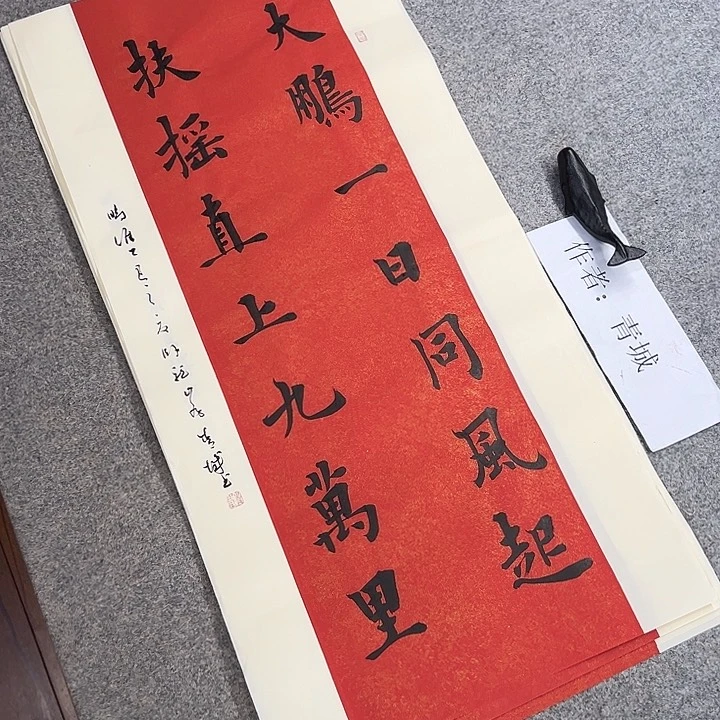 大鵬一日同風起
扶摇直上九萬里
青城书
作者：青城